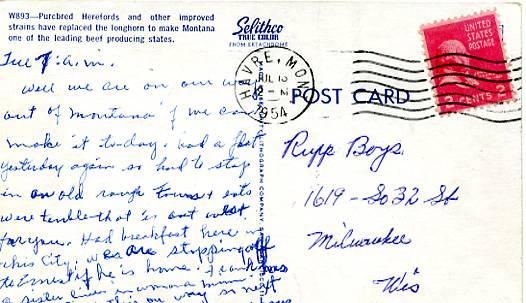 W893—Purebred Herefords and other improved
strains have replaced the longhorn to make Montana
one of the leading beef producing states.
Selithco
TRUE COLOR
FROM EKTACHROME
HAVRE, MON
JUL 13
12 - M
1954
UNITED
STATES
POSTAGE
2 CENTS 2
POST CARD
Tue 7 a.m.
Well we are on our way
out of Montana if we can
make it to-day. had a flat
yesterday again so had to stop
in an old rough town & eats
were terrible that is out west
for you. Had breakfast here in
this City. We are stopping off
to Ernest if he is home. Frank
a sister lives in
this on way so
Rupp Boys
1619 - So 32 St
Milwaukee
Wis